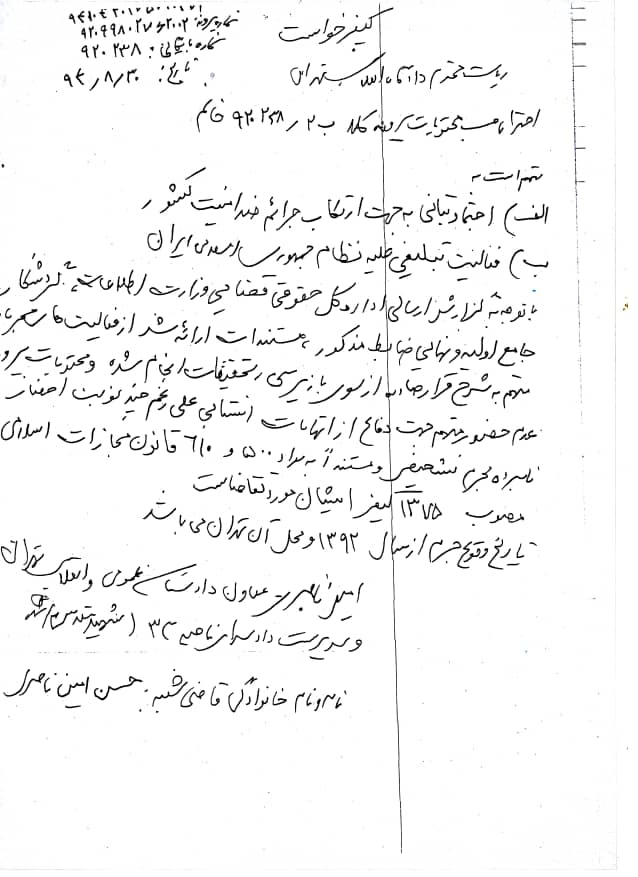 کیفرخواست
شماره پرونده: ۹۲۰۹۹۸۰۲۷۶۲۰۰۲
شماره بایگانی: ۹۲۰۲۳۸
تاریخ: ۹۴/۸/۳۰
ریاست محترم دادگاه انقلاب تهران
احتراما حسب محتویات پرونده کلاسه ب ۲/۹۲۰۲۳۸ خانم
متهم است به
الف) اجتماع و تبانی به جهت ارتکاب جرائم ضد امنیت کشور
ب) فعالیت تبلیغی علیه نظام جمهوری اسلامی ایران
با توجه به گزارش ارسالی اداره کل حقوقی قضایی وزارت اطلاعات، گردشکار
جامع اولیه و نهایی ضابط مذکور، مستندات ارائه شده از فعالیت های مجرمانه
متهم به شرح قرار صادره از سوی بازپرسی، تحقیقات انجام شده و محتویات پرونده
عدم حضور متهم جهت دفاع از اتهامات انتسابی علی رغم چند نوبت احضار
نامبرده مجرم تشخیص و مستنداً به مواد ۵۰۰ و ۶۱۰ قانون مجازات اسلامی
مصوب ۱۳۷۵ کیفر ایشان مورد تقاضاست
تاریخ وقوع جرم از سال ۱۳۹۲ و محل آن تهران می باشد
امین ناصری معاون دادستان عمومی و انقلاب تهران
و سرپرست دادسرای ناحیه ۳۳ (شهید مقدس)
نام و نام خانوادگی قاضی شعبه: حسن امین ناصری